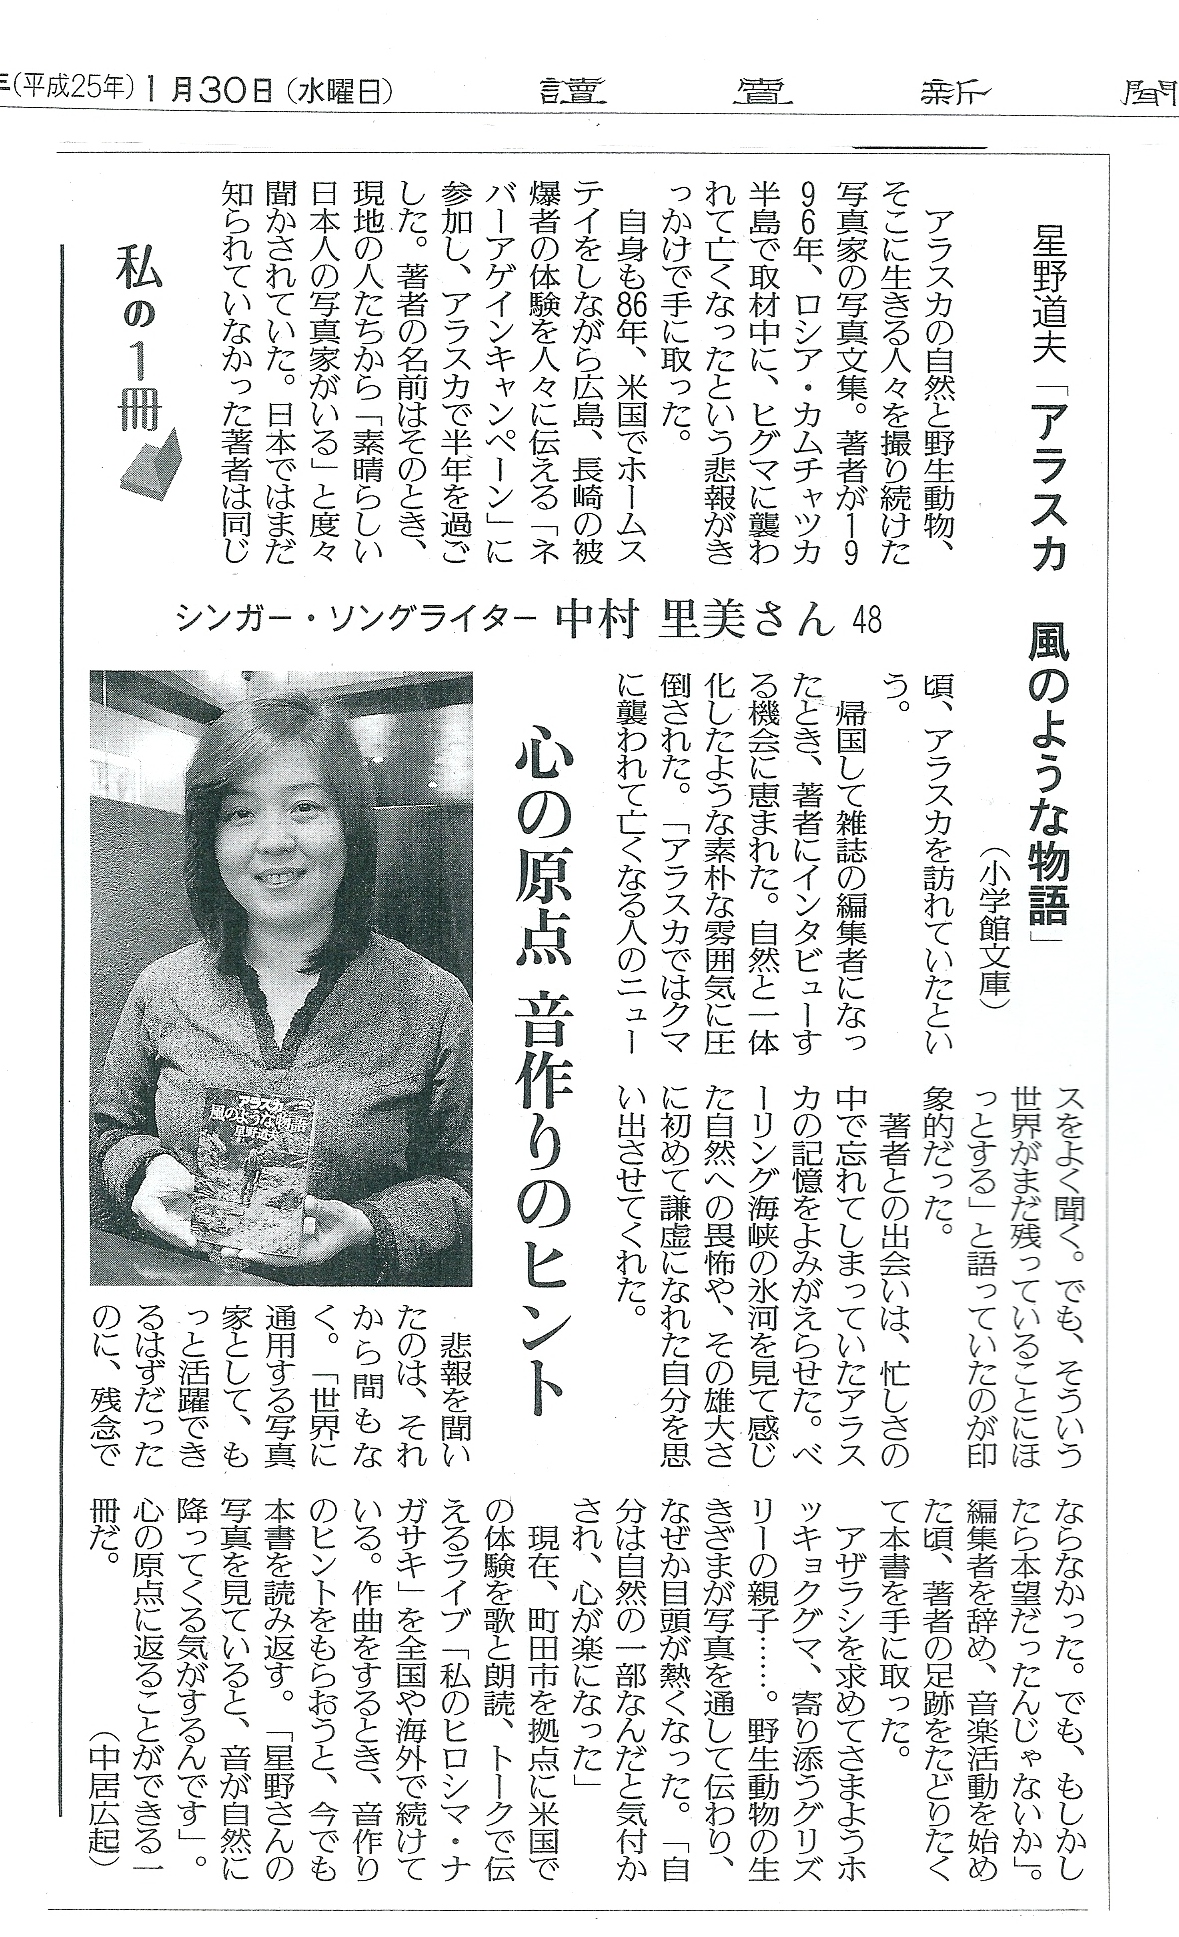 (平成25年)1月30日(水曜日)
讀賣新聞
星野道夫「アラスカ 風のような物語」
(小学館文庫)
アラスカの自然と野生動物、
そこに生きる人々を撮り続けた
写真家の写真文集。著者が19
96年、ロシア・カムチャツカ
半島で取材中に、ヒグマに襲わ
れて亡くなったという悲報がき
っかけで手に取った。
自身も86年、米国でホームス
テイをしながら広島、長崎の被
爆者の体験を人々に伝える「ネ
バーアゲインキャンペーン」に
参加し、アラスカで半年を過ご
した。著者の名前はそのとき、
現地の人たちから「素晴らしい
日本人の写真家がいる」と度々
聞かされていた。日本ではまだ
知られていなかった著者は同じ
私の1冊
シンガー・ソングライター 中村 里美さん 48
頃、アラスカを訪れていたとい
う。
帰国して雑誌の編集者になっ
たとき、著者にインタビューす
る機会に恵まれた。自然と一体
化したような素朴な雰囲気に圧
倒された。「アラスカではクマ
に襲われて亡くなる人のニュー
心の原点 音作りのヒント
アラスカ
風のような物語
星野道夫
スをよく聞く。でも、そういう
世界がまだ残っていることにほ
っとする」と語っていたのが印
象的だった。
著者との出会いは、忙しさの
中で忘れてしまっていたアラス
カの記憶をよみがえらせた。ベ
ーリング海峡の氷河を見て感じ
た自然への畏怖や、その雄大さ
に初めて謙虚になれた自分を思
い出させてくれた。
悲報を聞い
たのは、それ
から間もな
く。「世界に
通用する写真
家として、も
っと活躍でき
るはずだった
のに、残念で
ならなかった。でも、もしかし
たら本望だったんじゃないか」。
編集者を辞め、音楽活動を始め
た頃、著者の足跡をたどりたく
て本書を手に取った。
アザラシを求めてさまようホ
ッキョクグマ、寄り添うグリズ
リーの親子……。野生動物の生
きざまが写真を通して伝わり、
なぜか目頭が熱くなった。「自
分は自然の一部なんだと気付か
され、心が楽になった」
現在、町田市を拠点に米国で
の体験を歌と朗読、トークで伝
えるライブ「私のヒロシマ・ナ
ガサキ」を全国や海外で続けて
いる。作曲をするとき、音作り
のヒントをもらおうと、今でも
本書を読み返す。「星野さんの
写真を見ていると、音が自然に
降ってくる気がするんです」。
心の原点に返ることができる一
冊だ。
(中居広起)